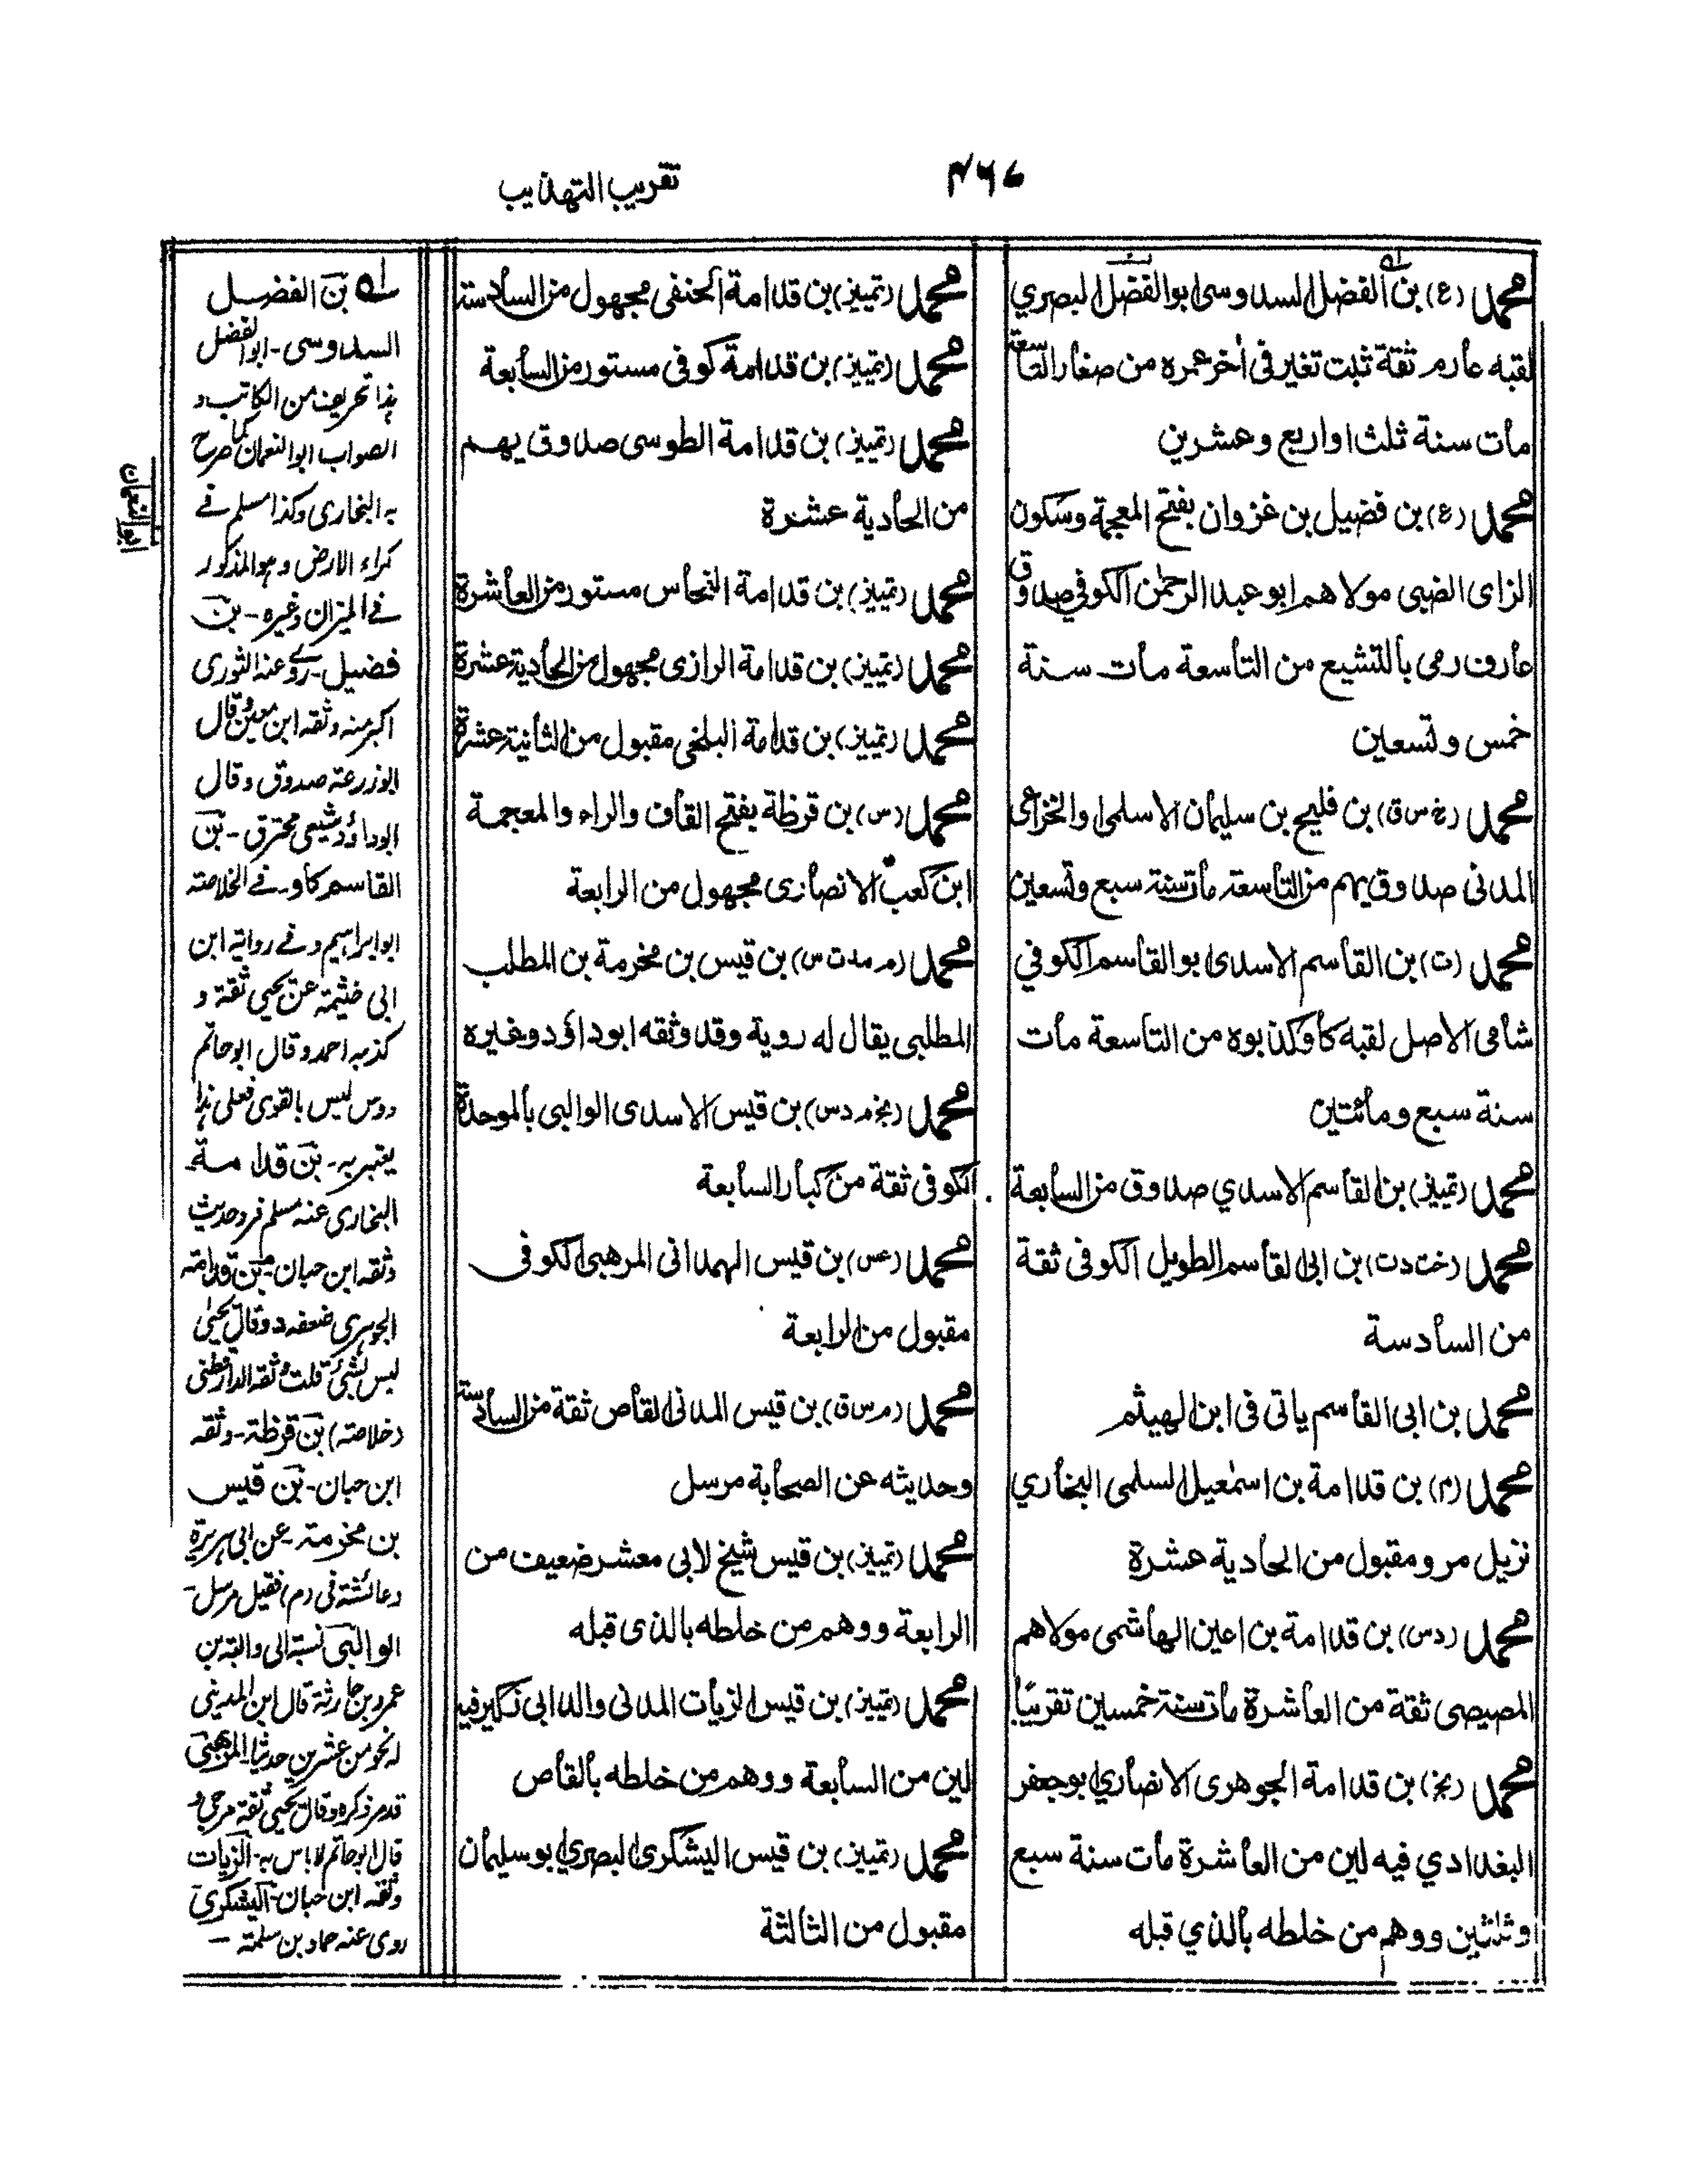 ۴۶۶
تقريب التهذيب
محمد (ع) بن الفضل السدوسى ابو الفضل البصري
لقبه عارم ثقة ثبت تغير فى أخر عمره من صغار التاسعة
مات سنة ثلث او اربع وعشرين
محمد (ع) بن فضيل بن غزوان بفتح المعجمة وسكون
الزاى الضبى مولاهم ابو عبد الرحمٰن الكوفي صدوق
عارف رمى بالتشيع من التاسعة مات سنة
خمس وتسعين
محمد (خ س ق) بن فليح بن سليمان الاسلمى او الخزاعى
المدنى صدوق يهم من التاسعة مات سنة سبع وتسعين
محمد (ت) بن القاسم الاسدى ابو القاسم الكوفي
شامى الاصل لقبه كاو كذبوه من التاسعة مات
سنة سبع ومائتين
محمد (تمييز) بن القاسم الاسدي صدوق من السابعة
محمد (خت د ت) بن ابى القاسم الطويل الكوفى ثقة
من السادسة
محمد بن ابى القاسم ياتى فى ابن الهيثم
محمد (م) بن قدامة بن اسمٰعيل السلمى البخاري
نزيل مرو مقبول من الحادية عشرة
محمد (د س) بن قدامة بن اعين الهاشمى مولاهم
المصيصى ثقة من العاشرة مات سنة خمسين تقريبًا
محمد (بخ) بن قدامة الجوهرى الانصاري ابو جعفر
البغدادي فيه لين من العاشرة مات سنة سبع
وثلثين ووهم من خلطه بالذي قبله
محمد (تمييز) بن قدامة الحنفى مجهول من السادسة
محمد (تمييز) بن قدامة كوفى مستور من السابعة
محمد (تمييز) بن قدامة الطوسى صدوق يهم
من الحادية عشرة
محمد (تمييز) بن قدامة النحاس مستور من العاشرة
محمد (تمييز) بن قدامة الرازى مجهول من الحادية عشرة
محمد (تمييز) بن قدامة البلخى مقبول من الثانية عشرة
محمد (س) بن قرظة بفتح القاف والراء والمعجمة
ابن كعب الانصارى مجهول من الرابعة
محمد (م مد ت س) بن قيس بن مخرمة بن المطلب
المطلبى يقال له روية وقد وثقه ابوداؤد وغيره
محمد (بخ م د س) بن قيس الاسدى الوالبى بالموحدة
الكوفى ثقة من كبار السابعة
محمد (عس) بن قيس الهمدانى المرهبى الكوفى
مقبول من الرابعة
محمد (م س ق) بن قيس المدنى القاص ثقة من السادسة
وحديثه عن الصحابة مرسل
محمد (تمييز) بن قيس شيخ لابى معشر ضعيف من
الرابعة ووهم من خلطه بالذى قبله
محمد (تمييز) بن قيس الزيات المدنى والد ابى زكير فيه
لين من السابعة ووهم من خلطه بالقاص
محمد (تمييز) بن قيس اليشكرى البصري ابو سليمان
مقبول من الثالثة
له بن الفضل
السدوسى - ابو الفضل
هذا تحريف من الكاتب و
الصواب ابو النعمان كما صرح
به البخارى وكذا مسلم فے
كراء الارض وهو المذكور
فے الميزان وغيره - بن
فضيل - روے عنه الثورى
اكبر منه وثقه ابن معين وقال
ابو زرعة صدوق وقال
ابوداؤد شيعى محترق - بن
القاسم كاو - فے الخلاصة
ابو ابراهيم وفے رواية ابن
ابى خيثمة عن يحيى ثقة و
كذبه احمد وقال ابو حاتم
ليس بالقوى فعلى هذا
يعتبر به - بن قدامة
البخارى عنه مسلم فرد حديث
وثقه ابن حبان - بن قدامة
الجوهرى ضعفه د وقال يحيىٰ
ليس بشئ قلت وثقه الدارقطنى
(خلاصة) بن قرظة - وثقه
ابن حبان - بن قيس
بن مخرمة - عن ابى هريرة
وعائشة فى (م) فقيل مرسل -
الوالبى نسبة الى والبة بن
عمرو بن حارثة قال ابن المدينى
له نحو من عشرين حديثا المرهبى
قد مر ذكره وقال يحيى ثقة مرجئ و
قال ابو حاتم لا باس به - الزيات
وثقه ابن حبان - اليشكرى
روى عنه حماد بن سلمة -
ابو النعمان